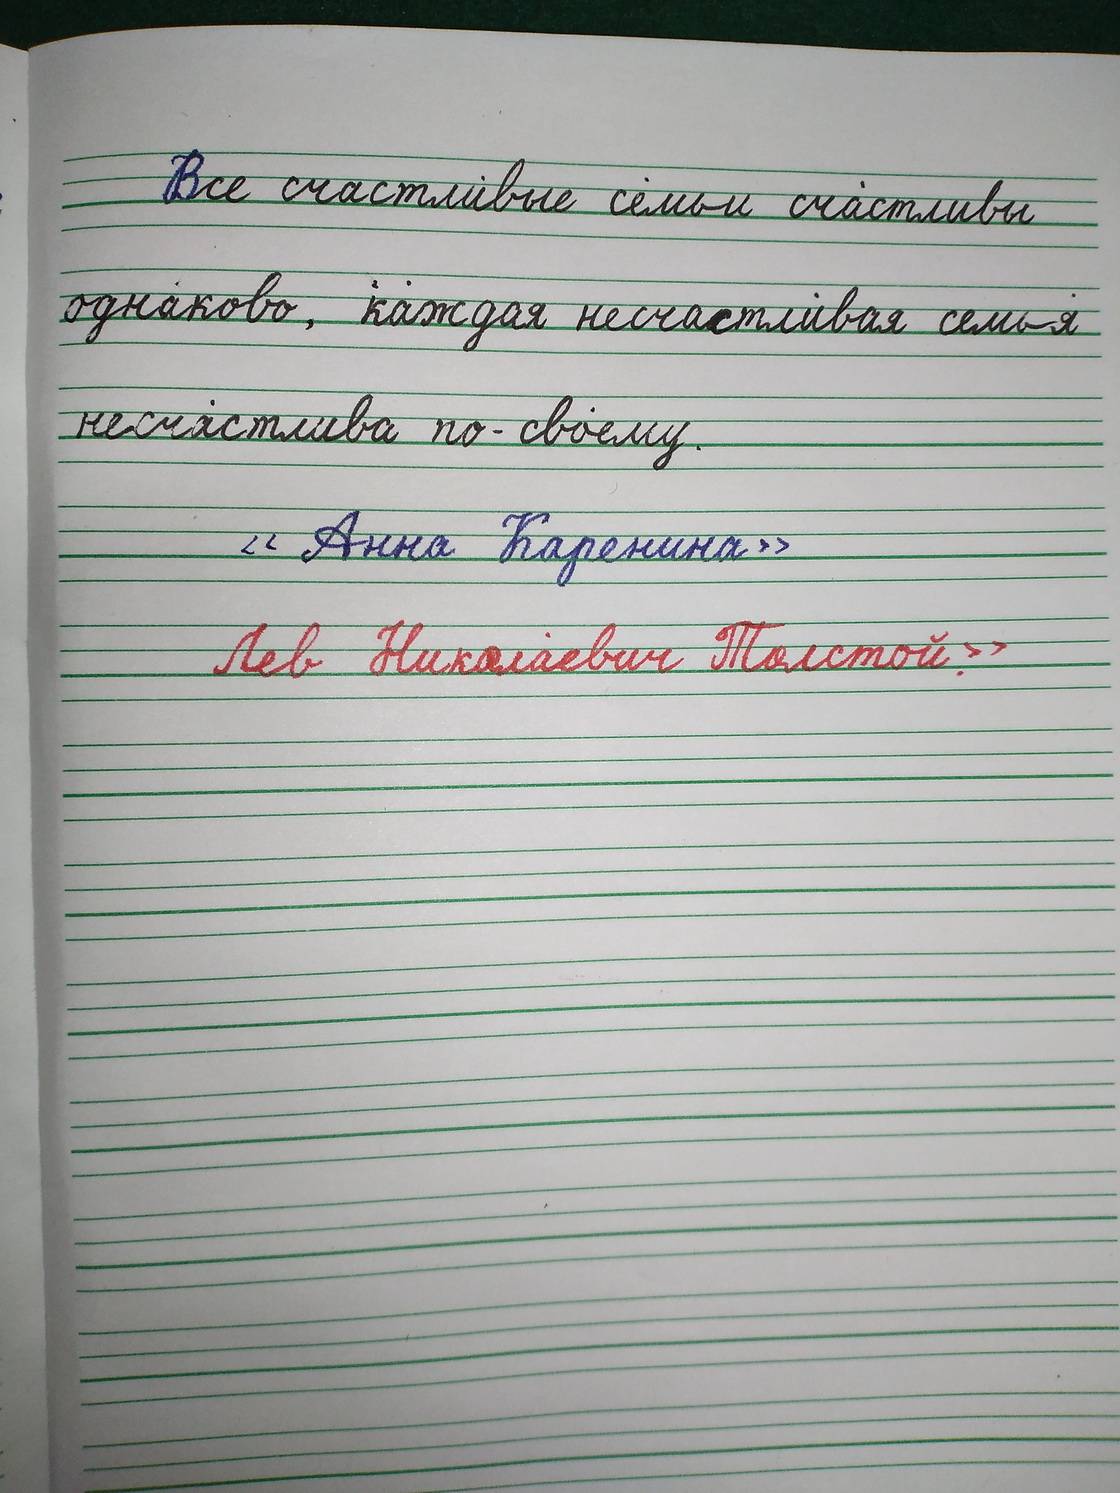 Все счастли́вые се́мьи сча́стливы
одна́ково, ка́ждая несчастли́вая семья́
несча́стлива по-сво́ему.
«Анна Каренина»
Лев Никола́евич Толстой.»